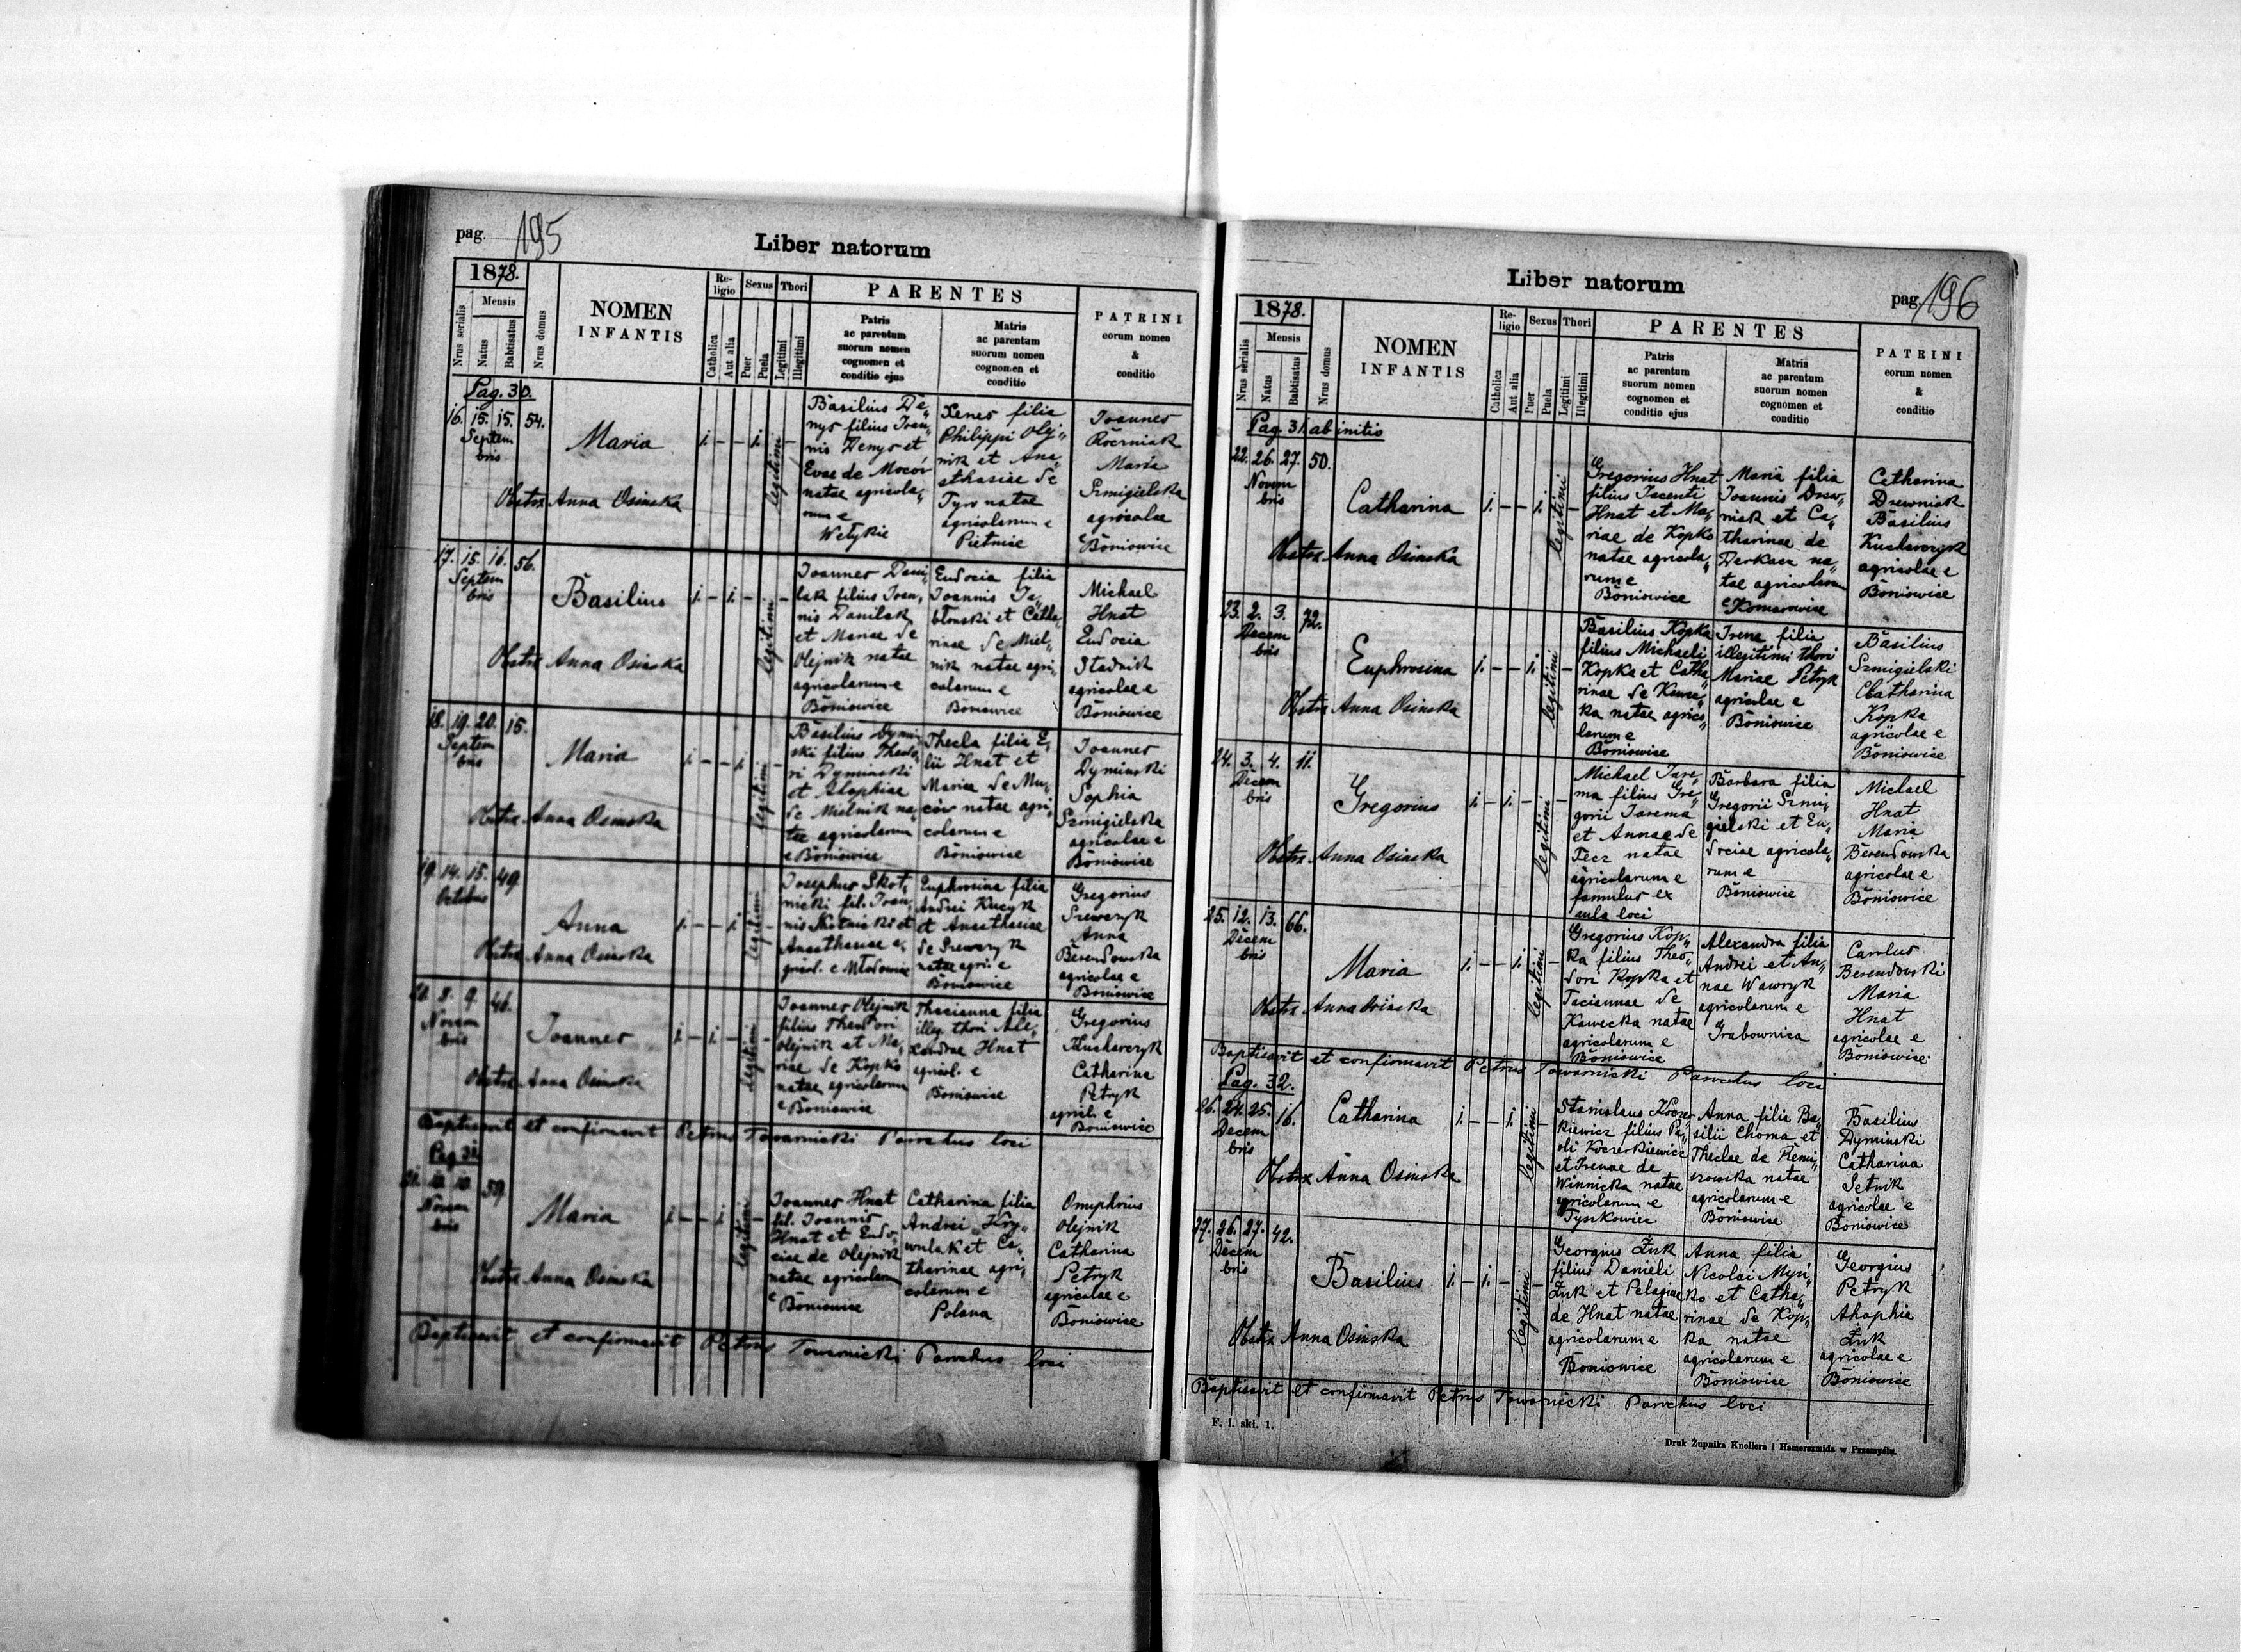 pag. 195
Liber natorum
1878.
Nrus serialis
Mensis
Natus
Babtisatus
Nrus domus
NOMEN
INFANTIS
Re-
ligio
Catholica
Aut alia
Sexus
Puer
Puela
Thori
Legitimi
Illegitimi
PARENTES
Patris
ac parentum
suorum nomen
cognomen et
conditio ejus
Matris
ac parentum
suorum nomen
cognomen et
conditio
PATRINI
eorum nomen
&
conditio
Pag. 30.
16. 15. 15. 54.
Septem
bris
Maria
1. – – 1. legitimi –
Obstrx Anna Osinska
Basilius De„
nys filius Joan„
nis Denys et
Evae de Mocór
natae agricola„
rum e
Wełykie
Xenes filia
Philippi Olej„
nik et Ana„
sthasiae de
Tyro natae
agricolarum e
Pietnice
Joannes
Roczniak
Maria
Szmigielska
agricolae
e Boniowice
17. 15. 16. 56.
Septem
bris
Basilius
1. – 1. – legitimi –
Obstrx Anna Osinska
Joannes Dani„
lak filius Joan„
nis Danilak
et Mariae de
Olejnik natae
agricolarum e
Boniowice
Eudocia filia
Joannis Ja„
błonski et Catha„
rinae de Miel„
nik natae agri„
colarum e
Boniowice
Michael
Hnat
Eudocia
Stadnik
agricolae e
Boniowice
18. 19. 20. 15.
Septem
bris
Maria
1. – – 1. legitimi –
Obstrx Anna Osinska
Basilius Dymin„
ski filius Theodo„
ri Dyminski
et Glaphiae
de Mielnik na„
tae agricolarum
e Boniowice
Thecla filia E„
lii Hnat et
Mariae de Mu„
cór natae agri„
colarum e
Boniowice
Joannes
Dyminski
Sophia
Szmigielska
agricolae e
Boniowice
19. 14. 15. 49.
Octobris
Anna
1. – – 1. legitimi –
Obstrx Anna Osinska
Josephus Skot„
nicki fil. Joan„
nis Skotnicki et
Anasthasiae a„
gricol. e Młodowice
Euphrosina filia
Andrei Kucyk
et Anasthasiae
de Szewczyk
natae agri. e
Boniowice
Gregorius
Szewczyk
Anna
Berendowska
agricolae e
Boniowice
20. 8. 9. 46.
Novem
bris
Joannes
1. – 1. – legitimi –
Obstrx Anna Osinska
Joannes Olejnik
filius Theodori
Olejnik et Ma„
riae de Kopko
natae agricolarum
e Boniowice
Thacianna filia
illeg. thori Ale„
xandrae Hnat
agricol. e
Boniowice
Gregorius
Kucharczyk
Catharina
Petryk
agricol. e
Boniowice
Baptisavit et confirmavit Petrus Towarnicki Parochus loci
Pag 31
21. 10. 10. 59.
Novem
bris
Maria
1. – – 1. legitimi –
Obstrx Anna Osinska
Joannes Hnat
fil. Joannis
Hnat et Eudo„
ciae de Olejnik
natae agricolarum
e Boniowice
Catharina filia
Andrei Kry„
wulak et Ca„
tharinae agri„
colarum e
Polana
Onuphrius
Olejnik
Catharina
Petryk
agricolae e
Boniowice
Baptisavit et confirmavit Petrus Towarnicki Parochus loci
Liber natorum
pag. 196
1878.
Nrus serialis
Mensis
Natus
Babtisatus
Nrus domus
NOMEN
INFANTIS
Re-
ligio
Catholica
Aut alia
Sexus
Puer
Puela
Thori
Legitimi
Illegitimi
PARENTES
Patris
ac parentum
suorum nomen
cognomen et
conditio ejus
Matris
ac parentum
suorum nomen
cognomen et
conditio
PATRINI
eorum nomen
&
conditio
Pag. 31. ab initio
22. 26. 27. 50.
Novem
bris
Catharina
1. – – 1. legitimi –
Obstrx Anna Osinska
Gregorius Hnat
filius Jacenti
Hnat et Ma„
riae de Kopko
natae agricola„
rum e
Boniowice
Maria filia
Joannis Drew„
niak et Ca„
tharinae de
Derkacz na„
tae agricolarum
e Komarowice
Catharina
Drewniak
Basilius
Kucharczyk
agricolae e
Boniowice
23. 2. 3. 72.
Decem
bris
Euphrosina
1. – – 1. legitimi –
Obstrx Anna Osinska
Basilius Kopka
filius Michaeli
Kopka et Catha„
rinae de Kawe„
ka natae agrico„
larum e
Boniowice
Irena filia
illegitimi thori
Mariae Petryk
agricolae e
Boniowice
Basilius
Szmigielski
Chatharina
Kopka
agricolae e
Boniowice
24. 3. 4. 11.
Decem
bris
Gregorius
1. – 1. – legitimi –
Obstrx Anna Osinska
Michael Jare„
ma filius Gre„
gorii Jarema
et Annae de
Fecz natae
agricolarum e
famulus ex
aula loci
Barbara filia
Gregorii Szmi„
gielski et Eu„
dociae agricola„
rum e
Boniowice
Michael
Hnat
Maria
Berendowska
agricolae e
Boniowice
25. 12. 13. 66.
Decem
bris
Maria
1. – – 1. legitimi –
Obstrx Anna Osinska
Gregorius Kop„
ka filius Theo„
dori Kopka et
Taciannae de
Kawecka natae
agricolarum e
Boniowice
Alexandra filia
Andrei et An„
nae Wawryk
agricolarum e
Grabownica
Carolus
Berendowski
Maria
Hnat
agricolae e
Boniowice
Baptisavit et confirmavit Petrus Towarnicki Parochus loci
Pag. 32.
26. 24. 25. 16.
Decem
bris
Catharina
1. – – 1. legitimi –
Obstrx Anna Osinska
Stanislaus Kocze„
kiewicz filius Pa„
oli Koczerkiewicz
et Irenae de
Winnicka natae
agricolarum e
Tyszkowice
Anna filia Ba„
silii Choma et
Theclae de Remi„
szowska natae
agricolarum e
Boniowice
Basilius
Dyminski
Catharina
Setnik
agricolae e
Boniowice
27. 26. 27. 42.
Decem
bris
Basilius
1. – 1. – legitimi –
Obstrx Anna Osinska
Georgius Żuk
filius Danieli
Żuk et Pelagiae
de Hnat natae
agricolarum e
Boniowice
Anna filia
Nicolai Myś„
ko et Catha„
rinae de Kop„
ka natae
agricolarum e
Boniowice
Georgius
Petryk
Ahaphia
Żuk
agricolae e
Boniowice
Baptisavit et confirmavit Petrus Towarnicki Parochus loci
F. 1. skł. 1.
Druk Żupnika Knollera i Hamerszmida w Przemyślu.